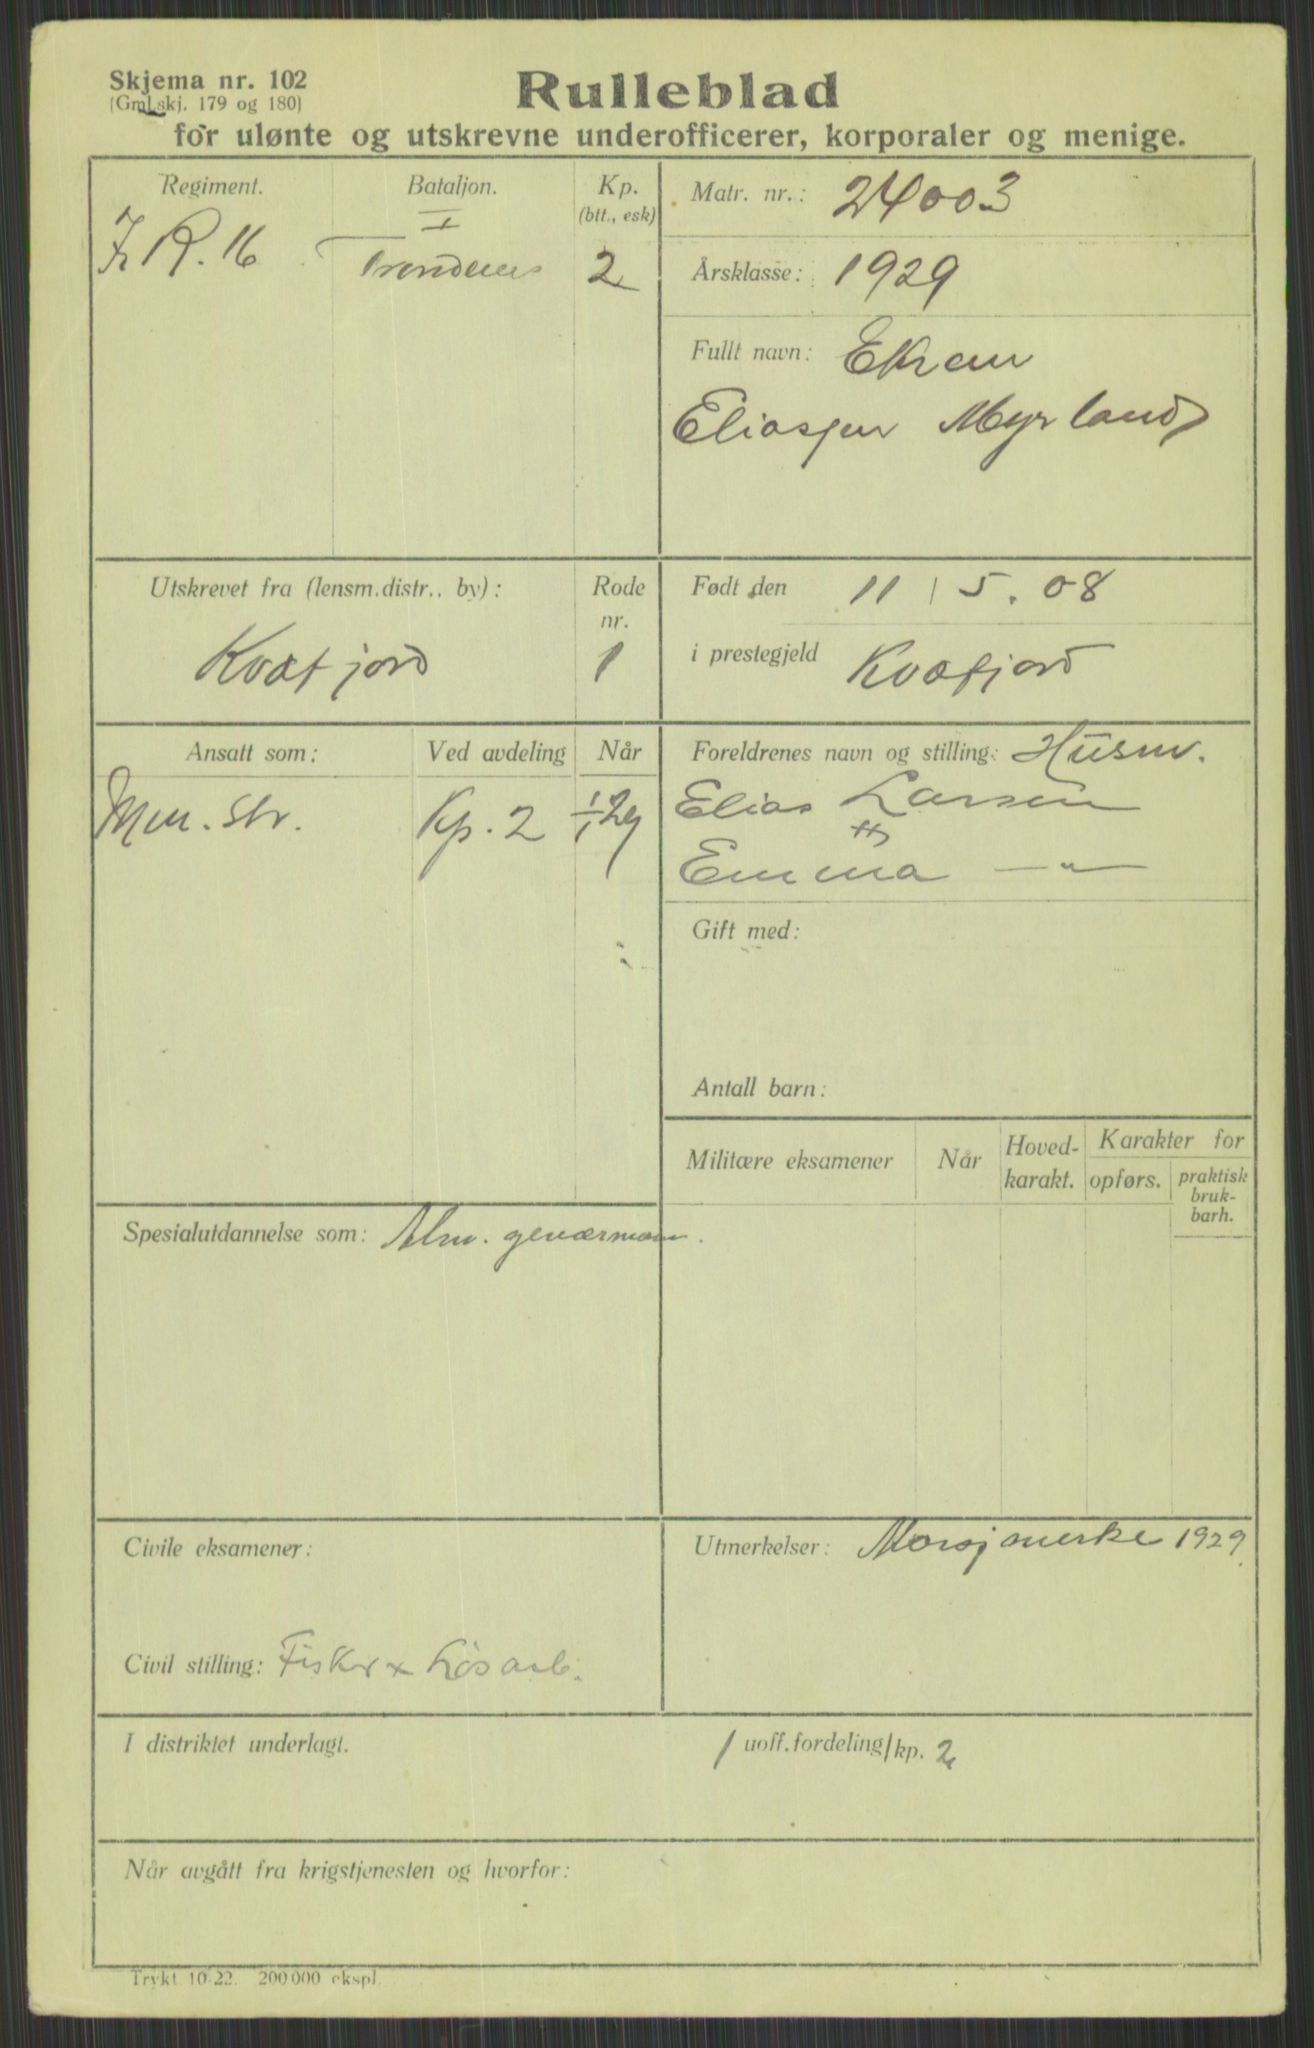 Skjema nr. 102
(Gml. skj. 179 og 180)
Rulleblad
for ulønte og utskrevne underofficerer, korporaler og menige.
Regiment.
Bataljon.
Kp.
(btt., esk)
I. R. 16
I
Trondenes
2
Matr. nr.: 24003
Årsklasse: 1929
Fullt navn:
Eliassen Myrland
Utskrevet fra (lensm.distr.. by):
Rode
nr.
Kvæfjord
1
Født den 11/5.08
i prestegjeld Kvæfjord
Ansatt som:
Ved avdeling
Når
Men. str.
Kp. 2
1/1 29
Foreldrenes navn og stilling: Husm.
Elias Larsen
Emma —"—
Gift med:
Antall barn:
Militære eksamener
Når
Hoved-
karakt.
Karakter for
opførs.
praktisk
bruk-
barh.
Spesialutdannelse som: Alm. geværmann.
Civile eksamener:
Civil stilling: Fisker + Løsarb.
Utmerkelser: Marsjmerke 1929.
I distriktet underlagt.
1 uoff.fordeling/kp. 2
Når avgått fra krigstjenesten og hvorfor:
Trykt 10-22. 200 000 ekspl.